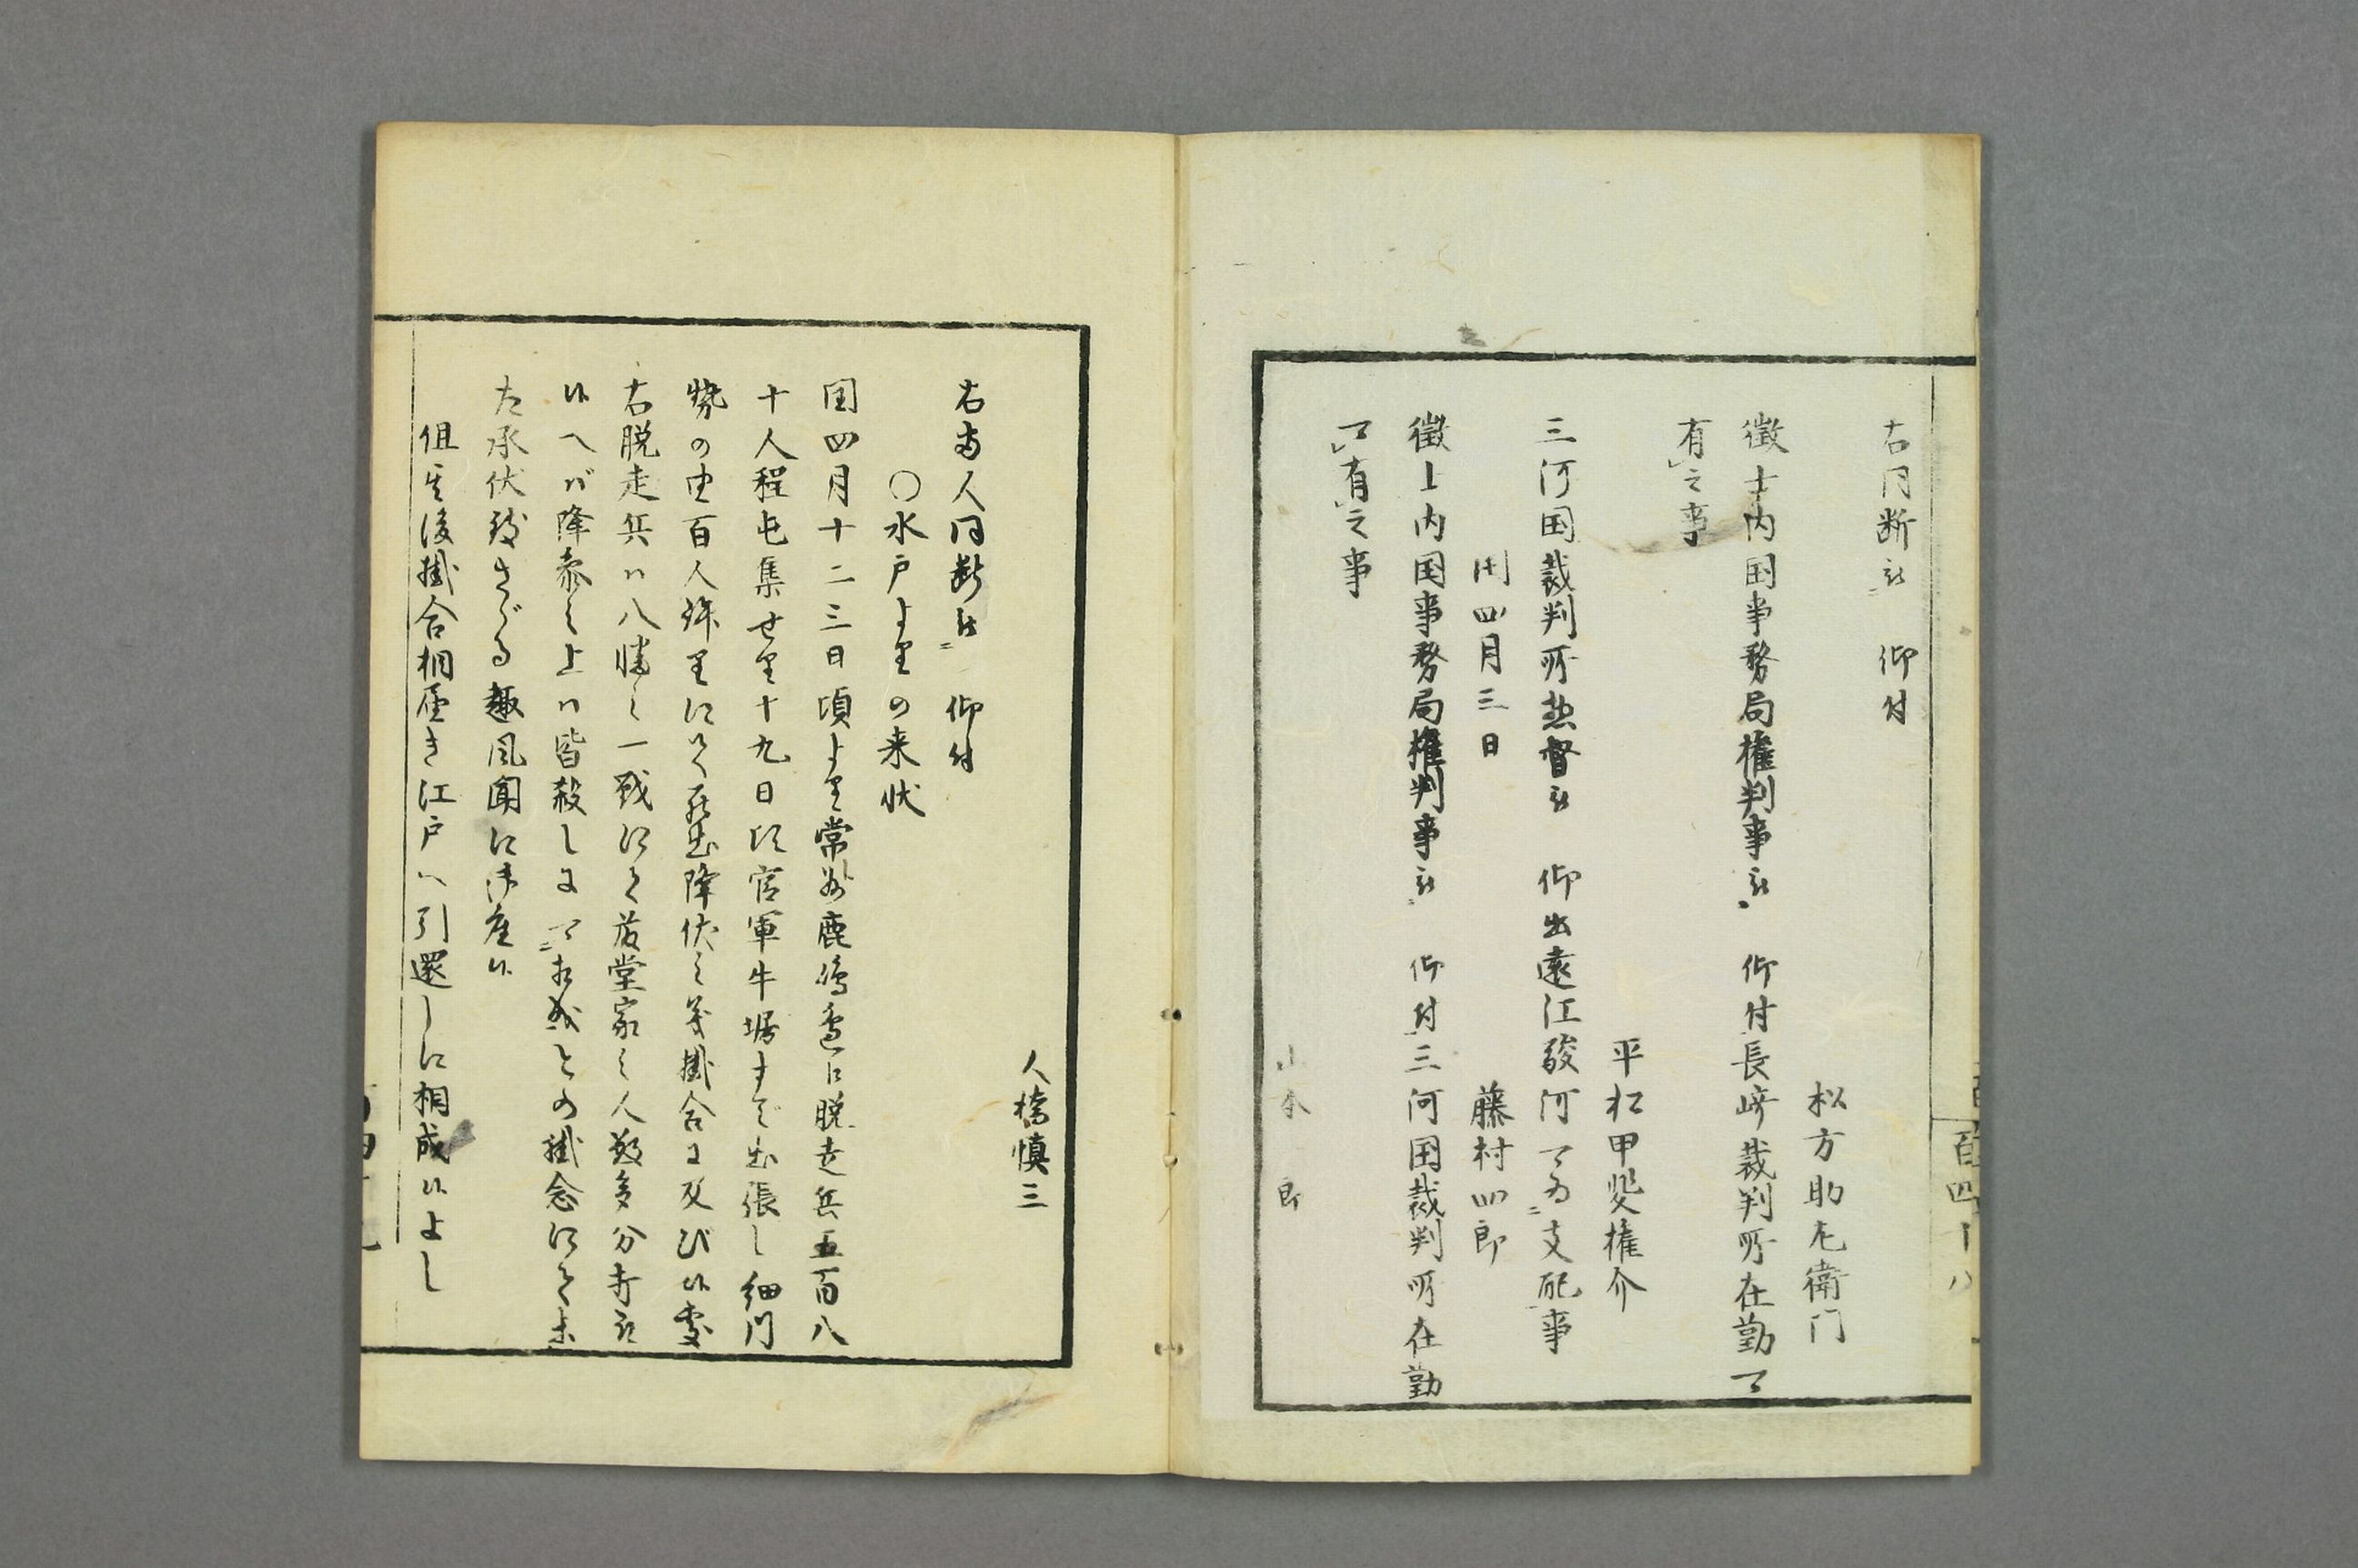 右同断被 仰付
松方助左衛門
徴士内国事務局権判事被 仰付長崎裁判所在勤可
有之事
平松甲斐権介
三河国裁判所惣督被 仰出遠江駿河可為支配事
閏四月三日 藤村四郎
徴士内国事務局権判事被 仰付三河国裁判所在勤
可有之事
山本 郎
百四十八
人橋慎三
右両人同断被 仰付
○水戸よりの来状
閏四月十二三日頃より常州鹿嶋邊に脱走兵五百八
十人程屯集せり十九日頃官軍牛堀まで出張し細川
勢の由百人許りにて罷出降伏之義掛合に及び候処
右脱走兵ハ八幡之一戦にて藤堂家之人数多分討取
候へバ降参之上ハ皆殺しに可相成との掛念にて未
た承伏致さゞる趣風聞に御座候
但其後掛合相届き江戸へ引還しに相成候よし